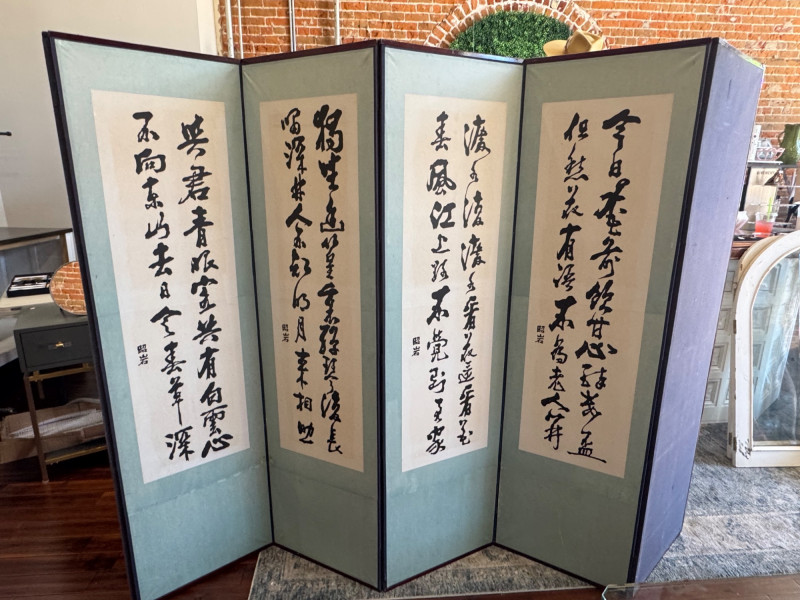 今日花前飲甘心醉數盃
但愁花有語不為老人開
昭岩
渡水復渡水看花還看花
春風江上路不覺到君家
昭岩
獨坐幽篁裏彈琴復長
嘯深林人不知明月來相照
昭岩
與君青眼客共有白雲心
不向東山去日令春草深
昭岩